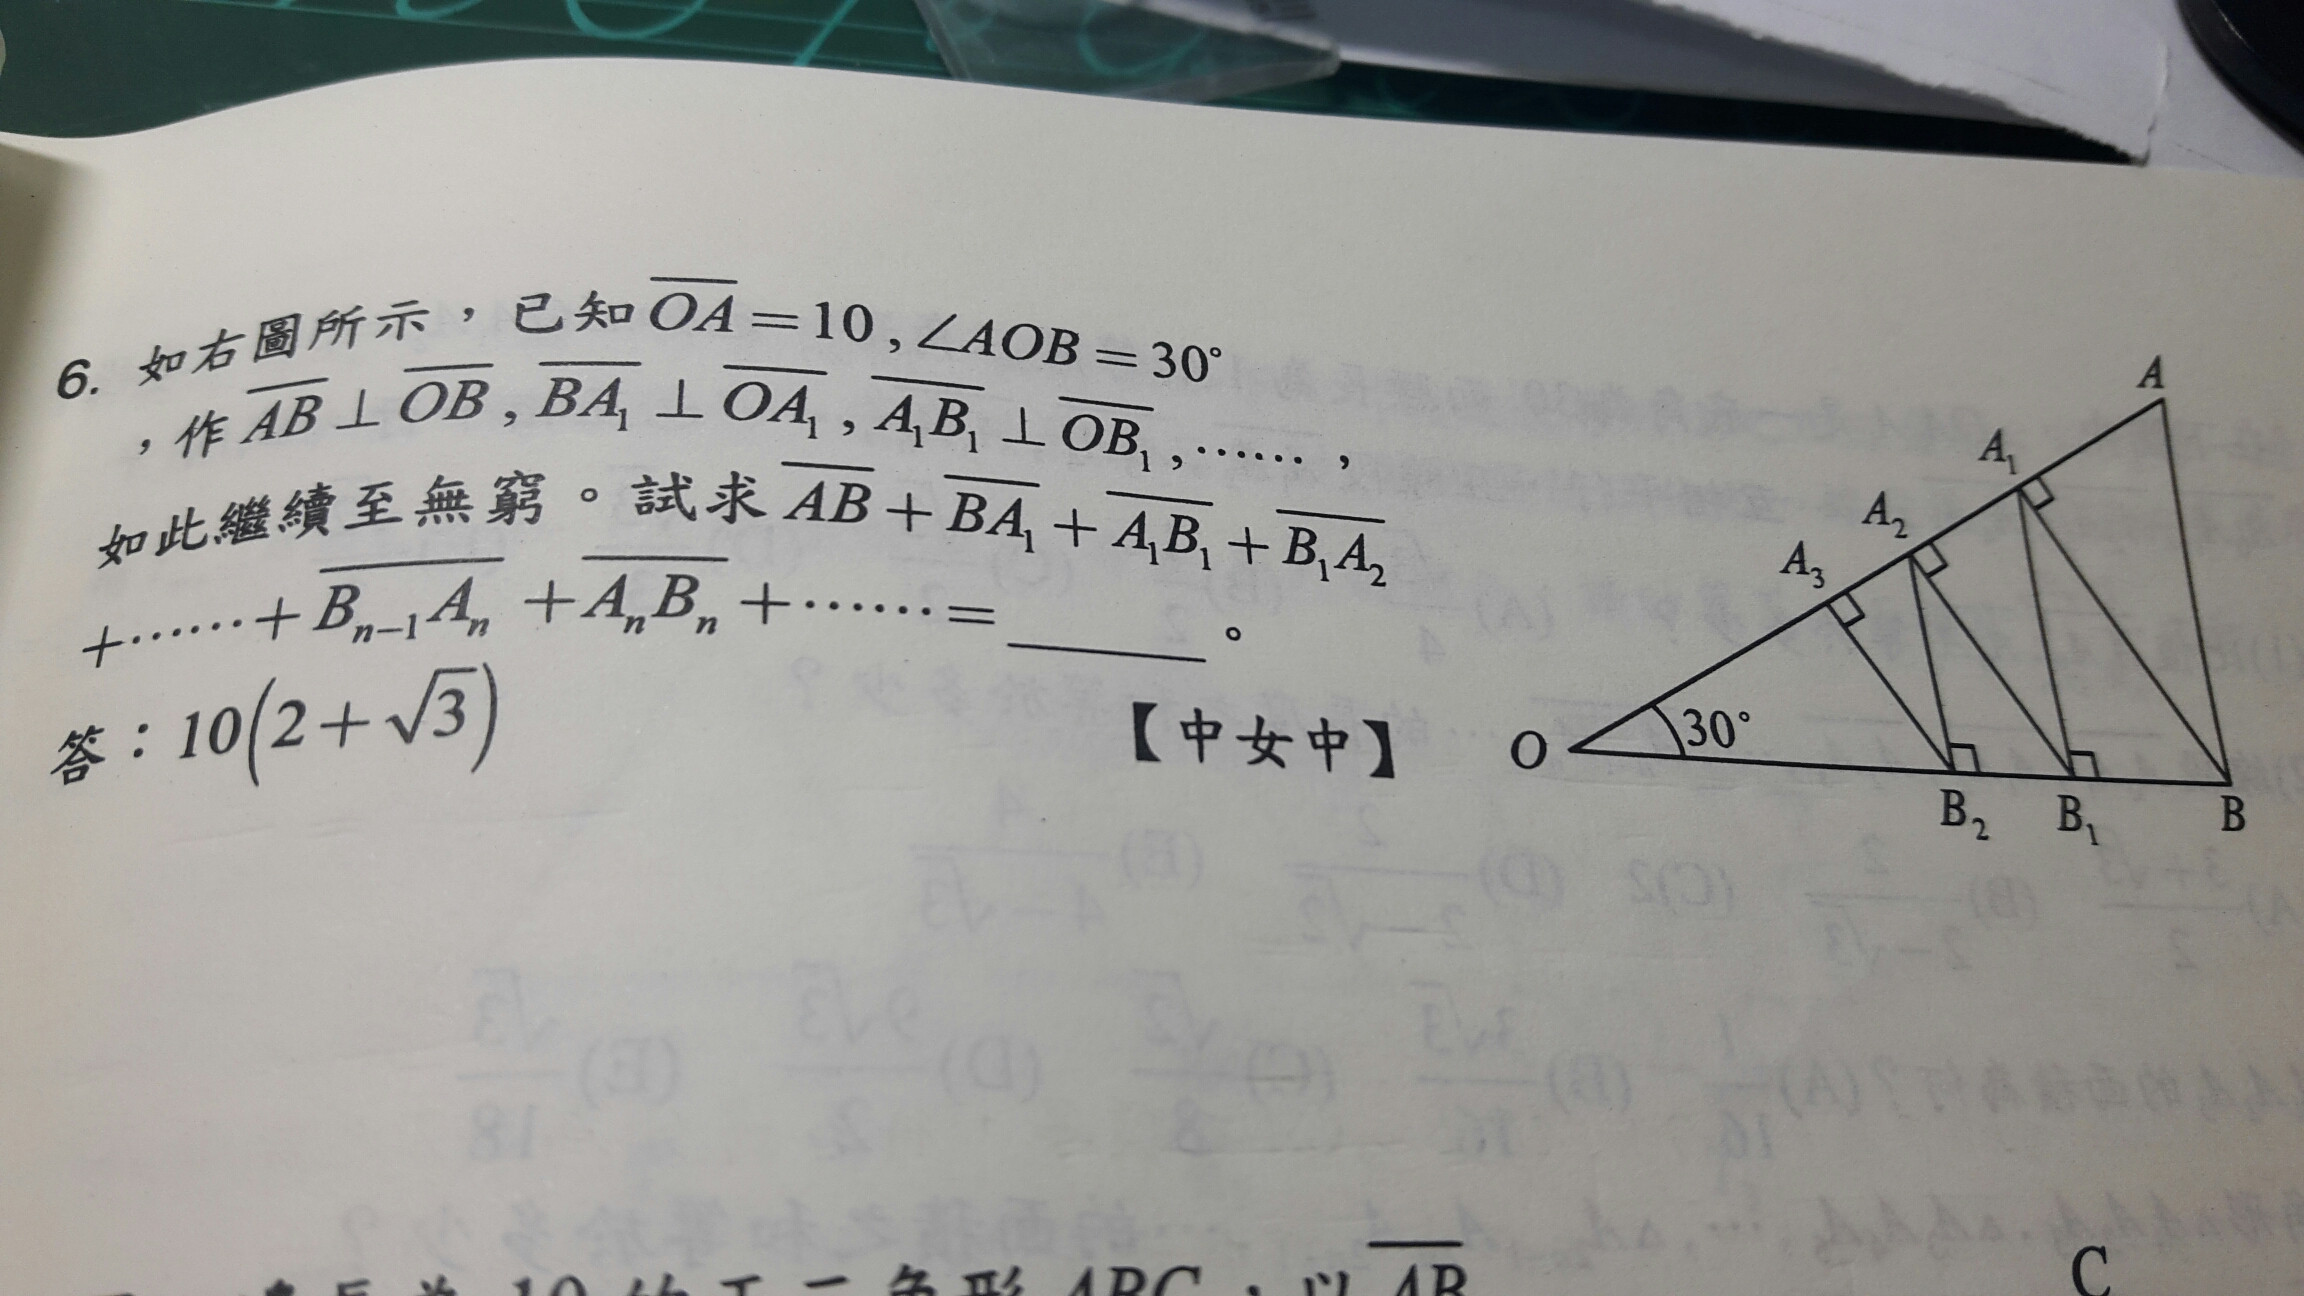 6. 如右圖所示，已知OA=10,∠AOB=30°
，作AB⊥OB,BA₁⊥OA₁,A₁B₁⊥OB₁,……，
如此繼續至無窮。試求AB+BA₁+A₁B₁+B₁A₂
+……+Bₙ₋₁Aₙ+AₙBₙ+……=______。
答：10(2+√3)
【中女中】
A
A₁
A₂
A₃
O 30°
B₂ B₁ B
ABC，以AB
C